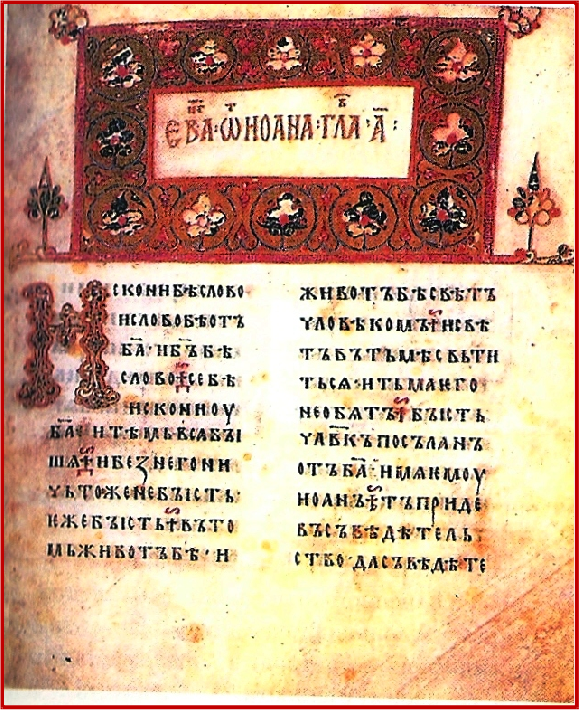 ЕВА҃·ѾИОАНА·ГЛА·А҃:
исконибѣслово
исловобѣотъ
ба҃·ибъ҃бѣ
слово·себѣ
искониоу
ба҃·итѣмьвьсабꙑ
шѧ·ибезнегони
чьтоженебꙑсть·
ѥжебꙑсть·въто
мьживотъбѣ·и
животъбѣсвѣтъ
чловѣкомъ·исвѣ
тъвътьмѣсвьти
тьсѧ·итьмаѥго
необѧтъ·бꙑсть
чл҃вкъпосъланъ
отъба҃·имѧѥмоу
иоанъ·тъприде
въсъвѣдѣтель
ство·дасъвѣдѣте